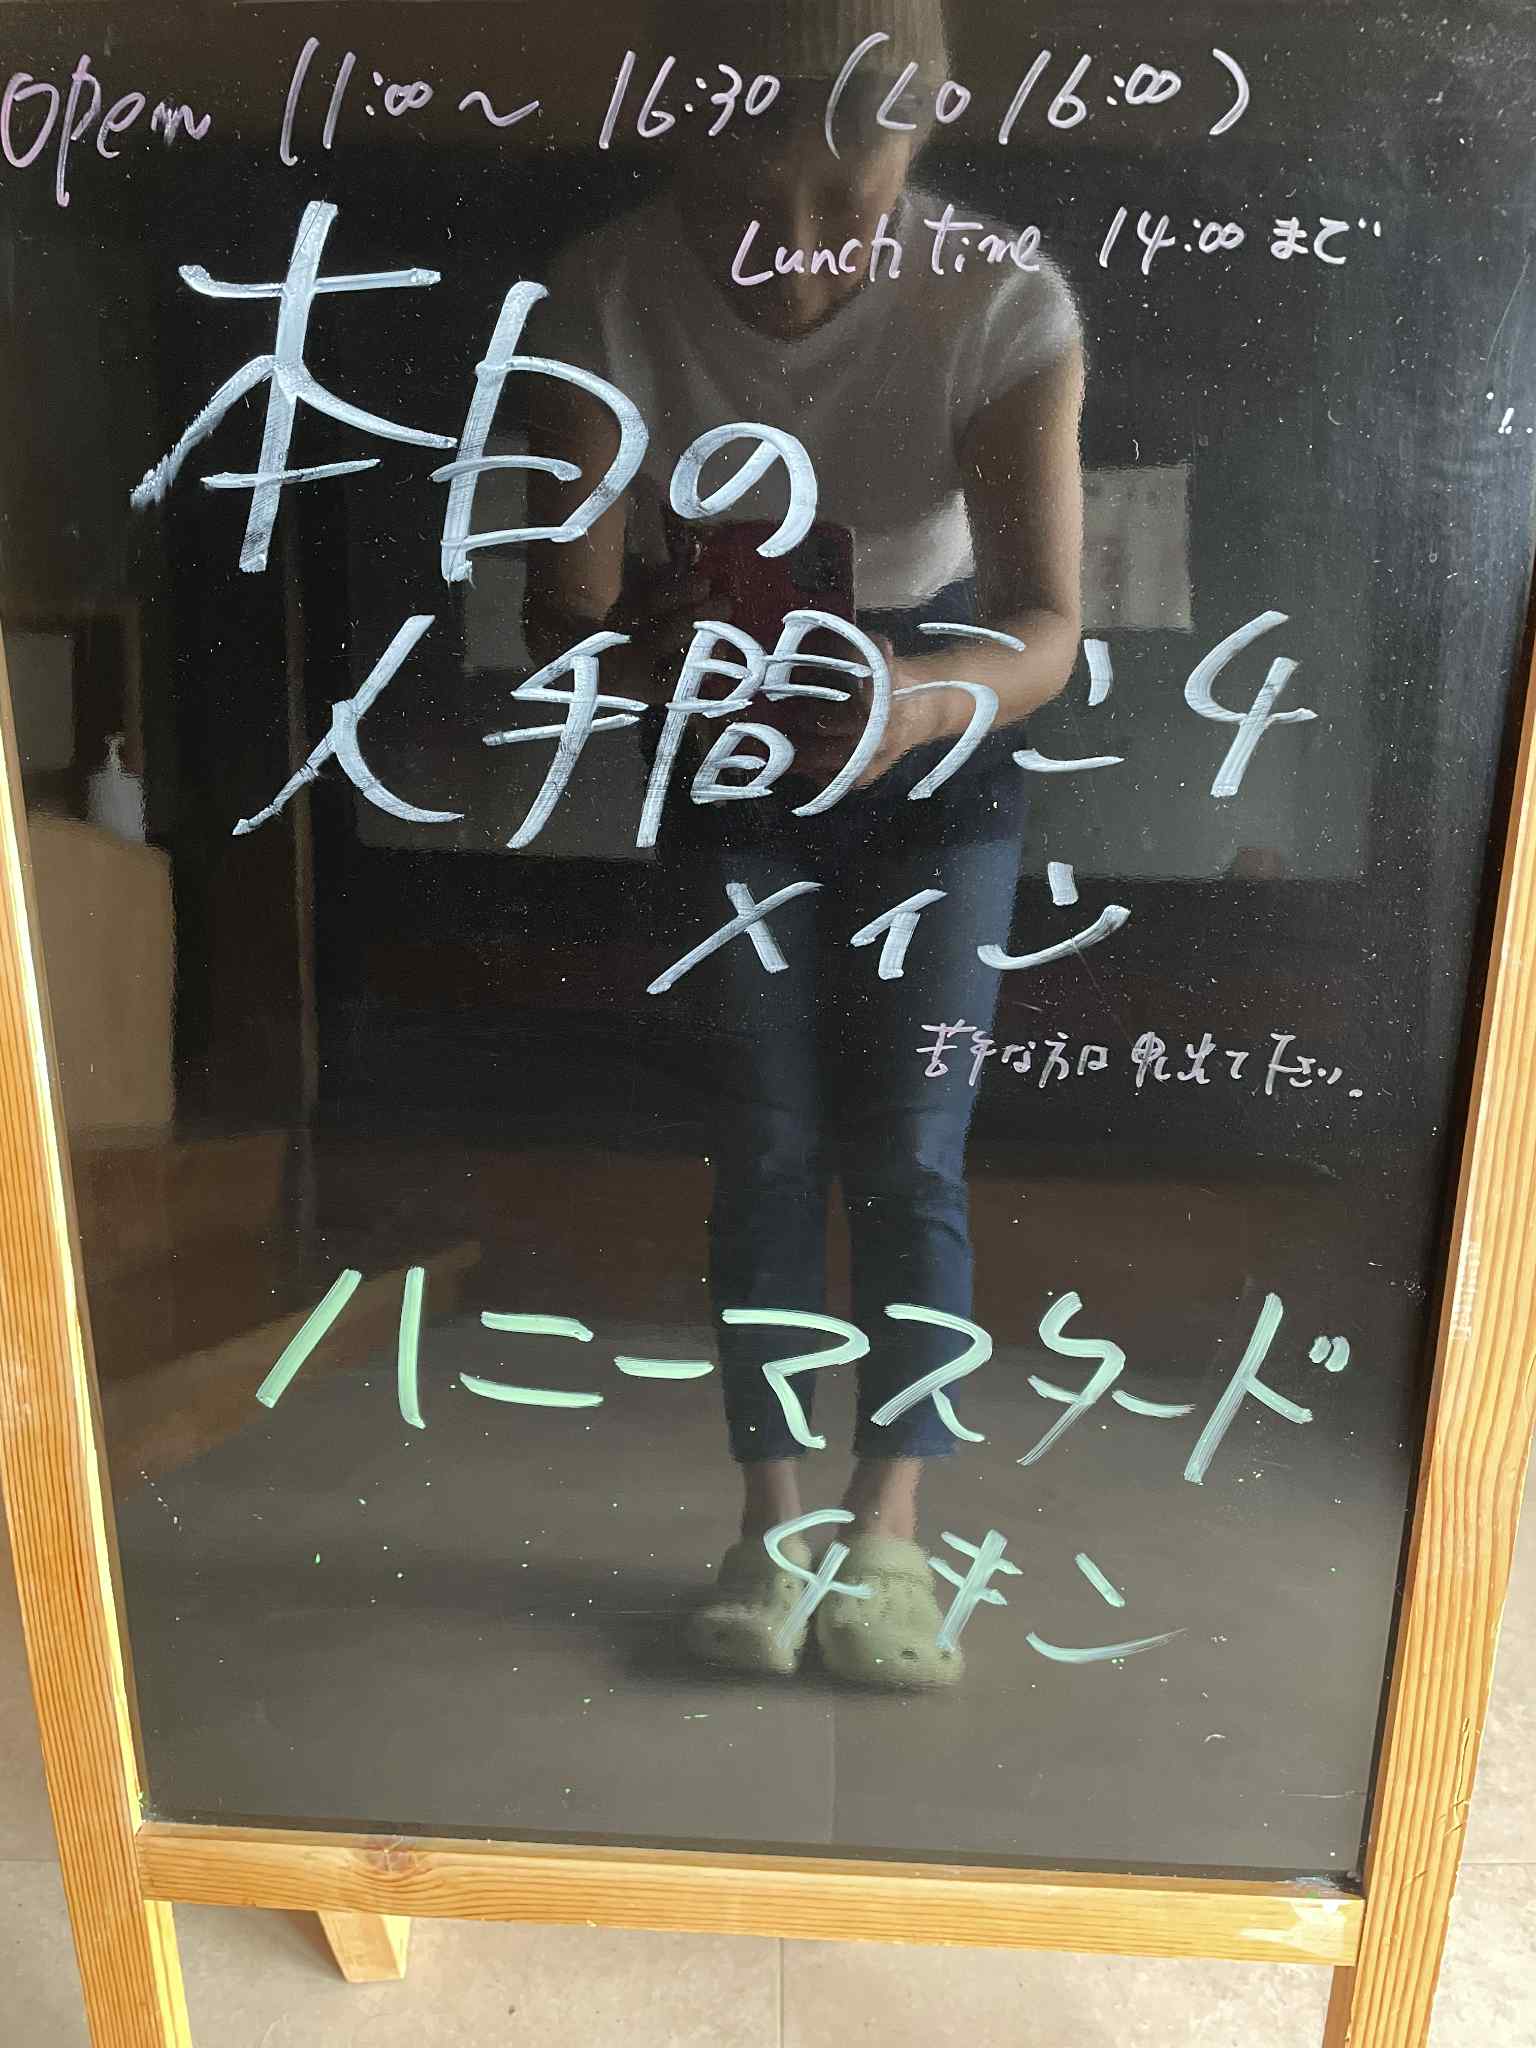 Open 11:00〜16:30 (LO 16:00)
Lunch time 14:00 まで
本日の
人手間ランチ
メイン
苦手な方は申出て下さい。
ハニーマスタード
チキン